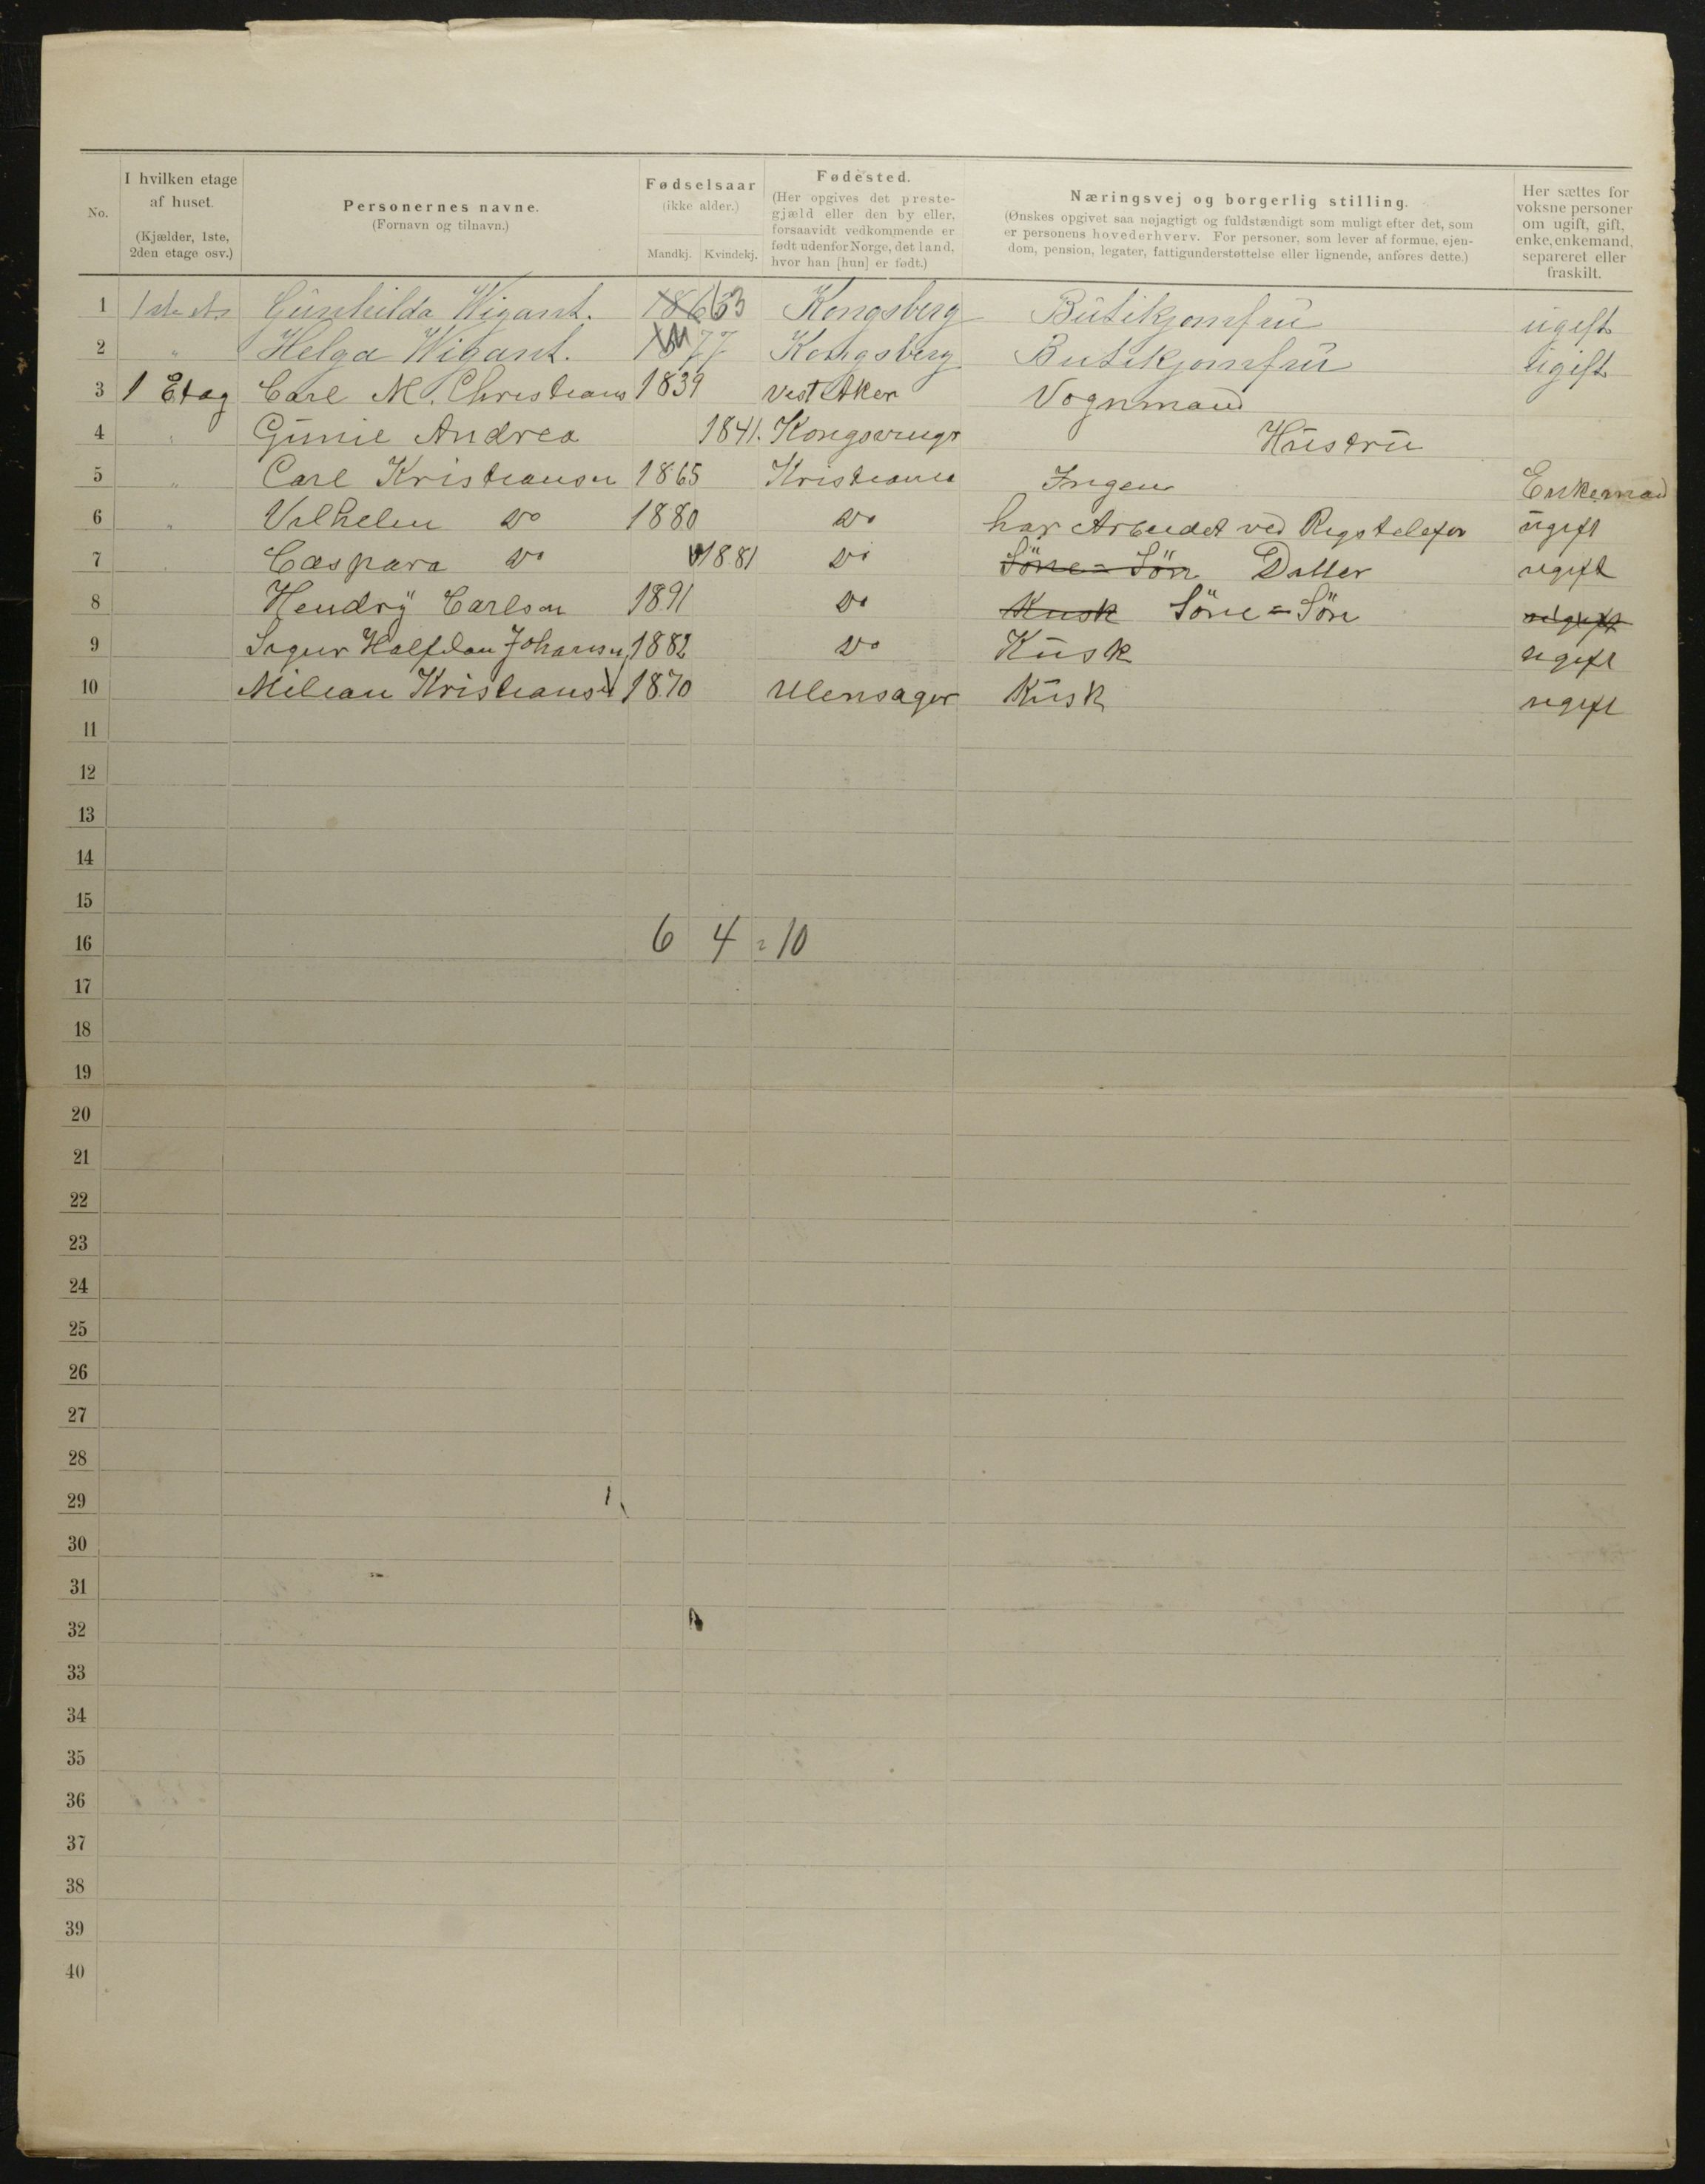 No.
I hvilken etage
af huset.
(Kjælder, 1ste,
2den etage osv.)
Personernes navne.
(Fornavn og tilnavn.)
Fødselsaar
(ikke alder.)
Mandkj. Kvindekj.
Fødested.
(Her opgives det preste-
gjæld eller den by eller,
forsaavidt vedkommende er
født udenfor Norge, det land,
hvor han [hun] er født.)
Næringsvej og borgerlig stilling.
(Ønskes opgivet saa nøjagtigt og fuldstændigt som muligt efter det, som
er personens hovederhverv. For personer, som lever af formue, ejen-
dom, pension, legater, fattigunderstøttelse eller lignende, anføres dette.)
Her sættes for
voksne personer
om ugift, gift,
enke, enkemand,
separeret eller
fraskilt.
1 1ste Gunhilda Wigant. 63 Kongsberg Butikjomfru ugift
2 " Helga Wigant. 77 Kongsberg Butikjomfru ugift
3 1 Etag Carl M. Christians 1839 Vest Aker Vognmand
4 " Gunie Andrea 1841. Hustru
5 " Carl Kristiansen 1865 Kristiania Ingen Enkemand
6 " Vilhelm Do 1880 Do har Arbeidet ved Rigstelefon ugift
7 Caspara Do 1881 Do Söne=Sön Datter ugift
8 Hendry Carlsen 1891 Do Kusk Söne=Sön ugift
9 Sigur Halfdan Johansen 1882 Do Kusk ugift
10 Milian Kristians 1870 Ulensager Kusk ugift
11
12
13
14
15
16 6 4 = 10
17
18
19
20
21
22
23
24
25
26
27
28
29
30
31
32
33
34
35
36
37
38
39
40